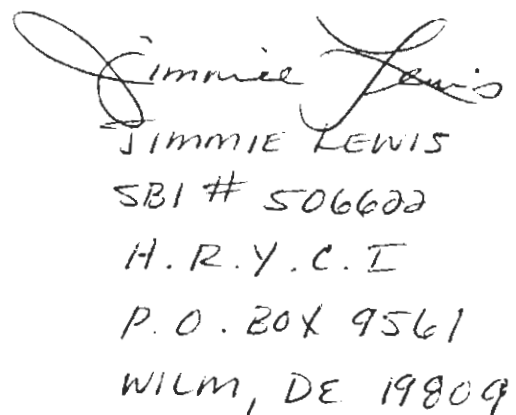 Jimmie Lewis
JIMMIE LEWIS
SBI # 506622
H.R.Y.C.I
P.O. BOX 9561
WILM, DE 19809